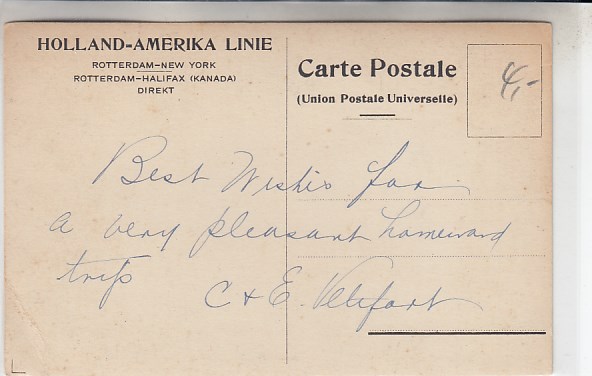 HOLLAND-AMERIKA LINIE
ROTTERDAM–NEW YORK
ROTTERDAM–HALIFAX (KANADA)
DIREKT
Carte Postale
(Union Postale Universelle)
4,-
Best Wishes for
a very pleasant homeward
trip
C & E.